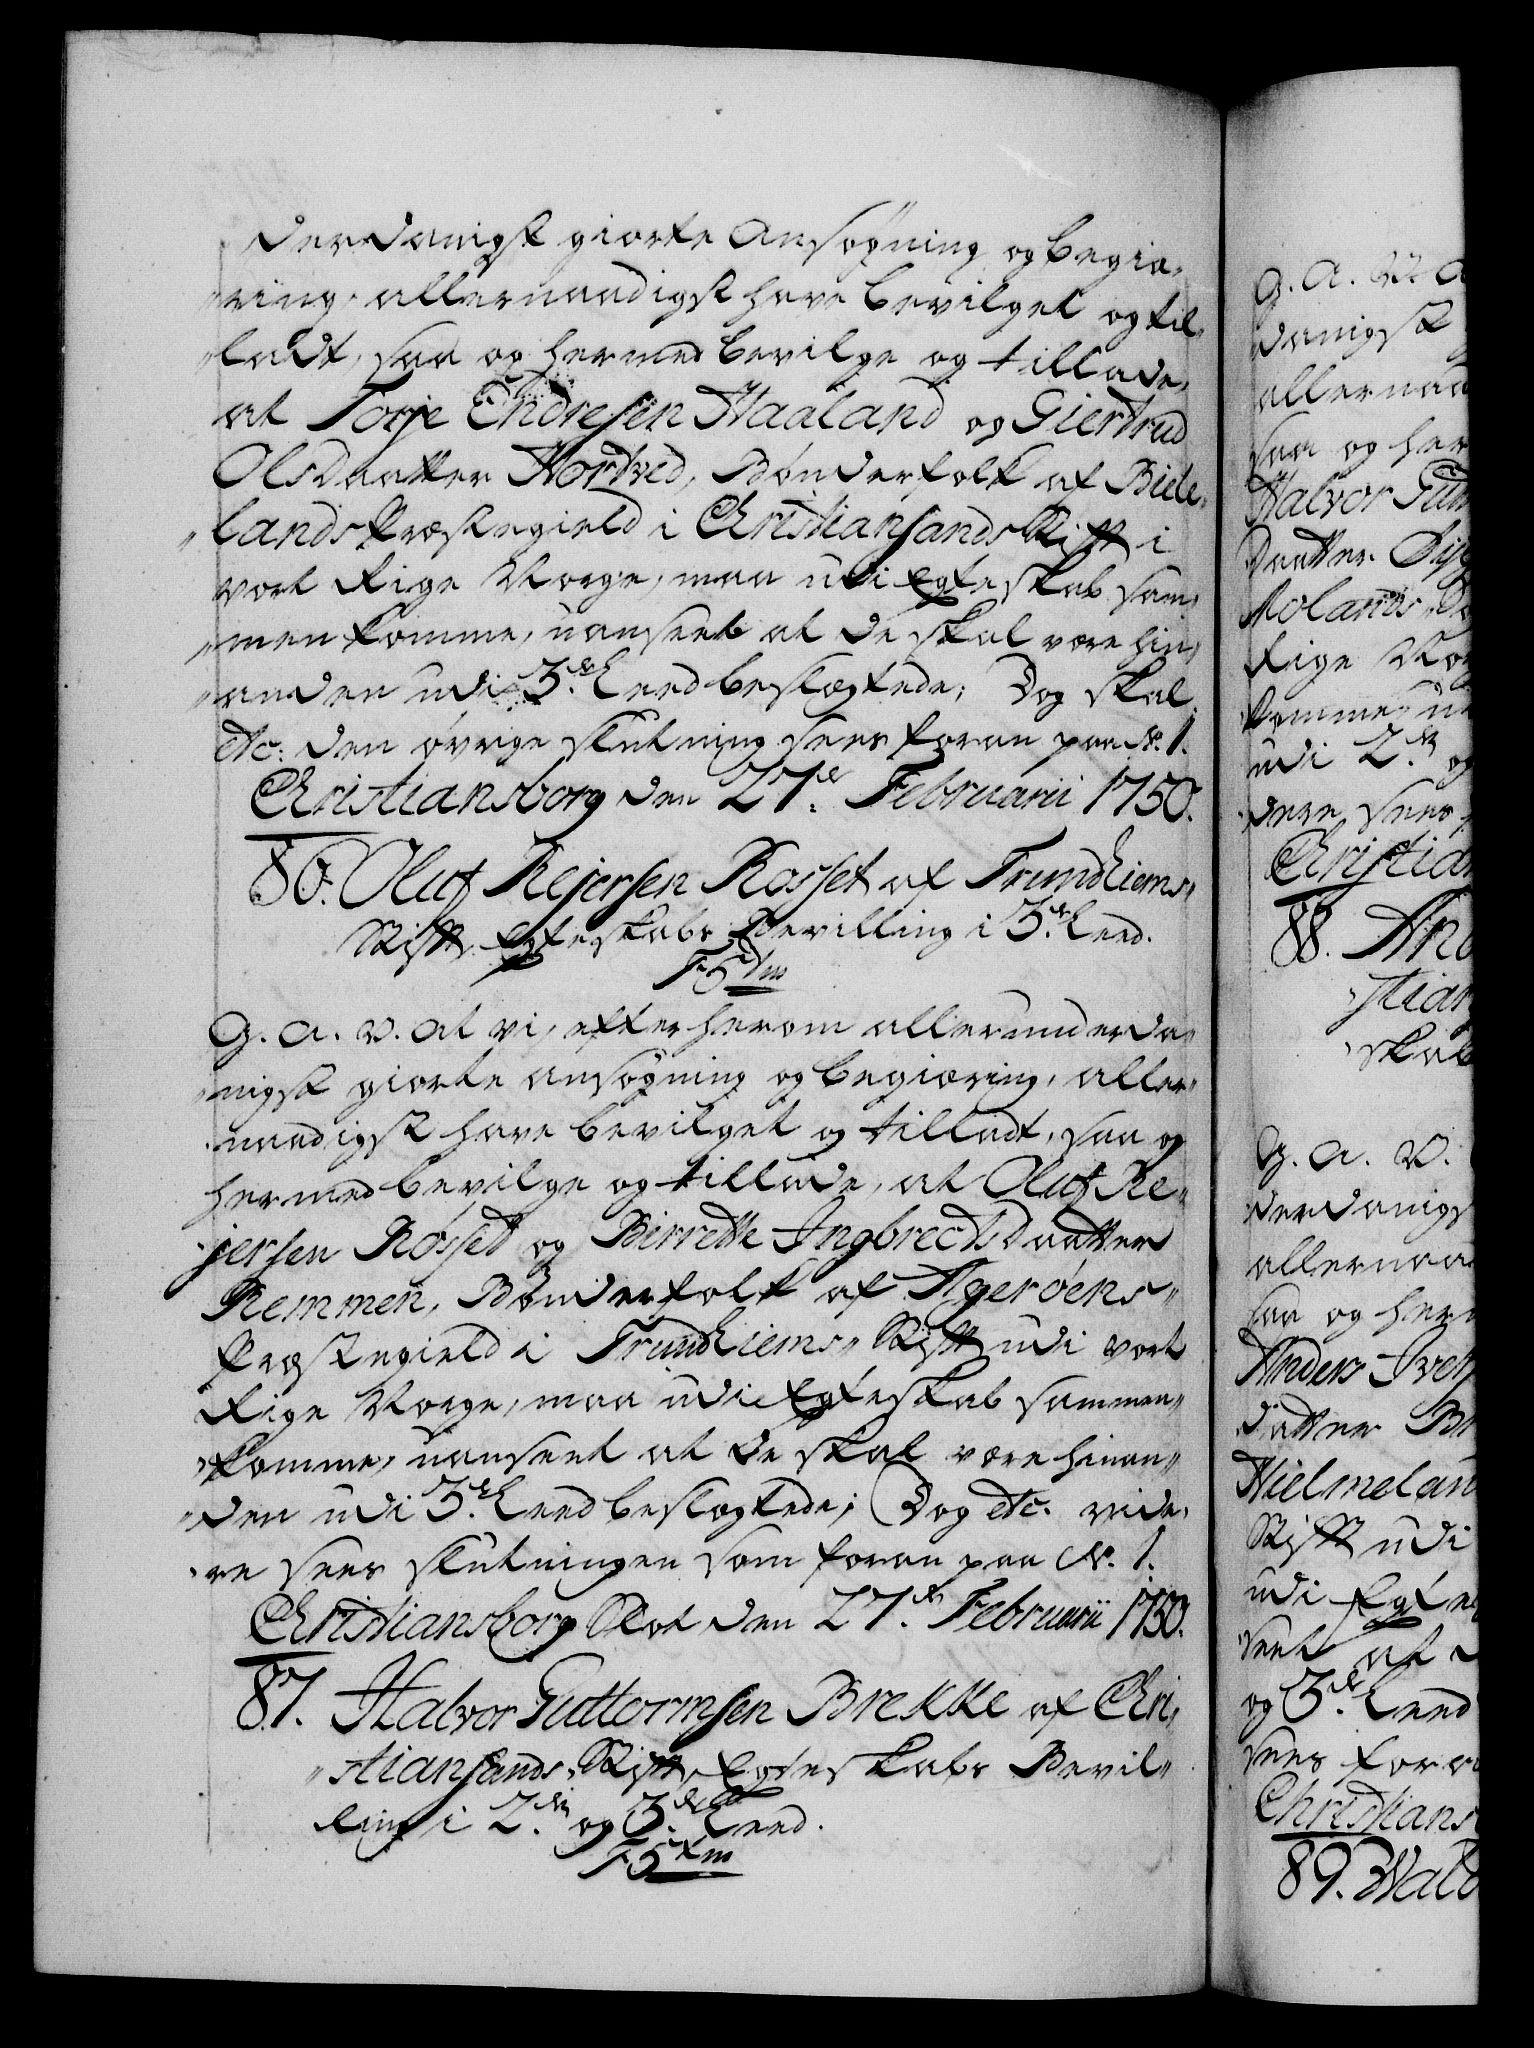 derdanigst giorte Ansøgning og begiæ-
ring, allernaadigst have bevilget og til-
ladt, saa og hermed bevilge og tillade,
at Torje Endresen Haaland og Giertrud
Olsdaatter Hortved, Bønderfolk af Biele-
lands Præstegield i Christiansands Stift i
vort Rige Norge, maa udi Egteskab sam-
men komme, uanseet at de skal være hin-
anden udi 3.de Leed beslægtede; Dog skal
etc: den øvrige slutning sees foran paa N. 1.
Christiansborg den 27.de Februarii 1750.
86. Oluf Rejersen Rosset af Trundhiems
Stift, Egteskabs Bevilling i 3.de Leed.
G. A. V. at vi, efter herom allerunderda-
nigst giorte ansøgning og begiæring, aller-
naadigst have bevilget og tilladt, saa og
hermed bevilge og tillade, at Oluf Re-
jersen Røsset og Birrette Ingbrectsdaatter
Remmen, Bønderfolk af Agerøens
Præstegield i Trundhiems Stift udi vort
Rige Norge, maa udi Egteskab sammen-
komme, uanseet at de skal være hinan-
den udi 3.de Leed beslægtede; Dog etc. vide-
re sees slutningen som foran paa N. 1.
Christiansborg Slot den 27.de Februarii 1750.
87. Halvor Guttormsen Brekke af Chri-
stiansands Stift, Egteskabs Bevil-
ling i 2.det og 3.de Leed.
G. A. V.
danigst
saa og her
Halvor Gut
daatter
Molands
Rige
udi 2.det og
Christian
88. And
stian
skab
G. A. V.
derdanigs
saa og her
Anders
datter
Hielmelan
Stift udi
udi Egte
og 3.de Leed
sees fora
Christians
89.